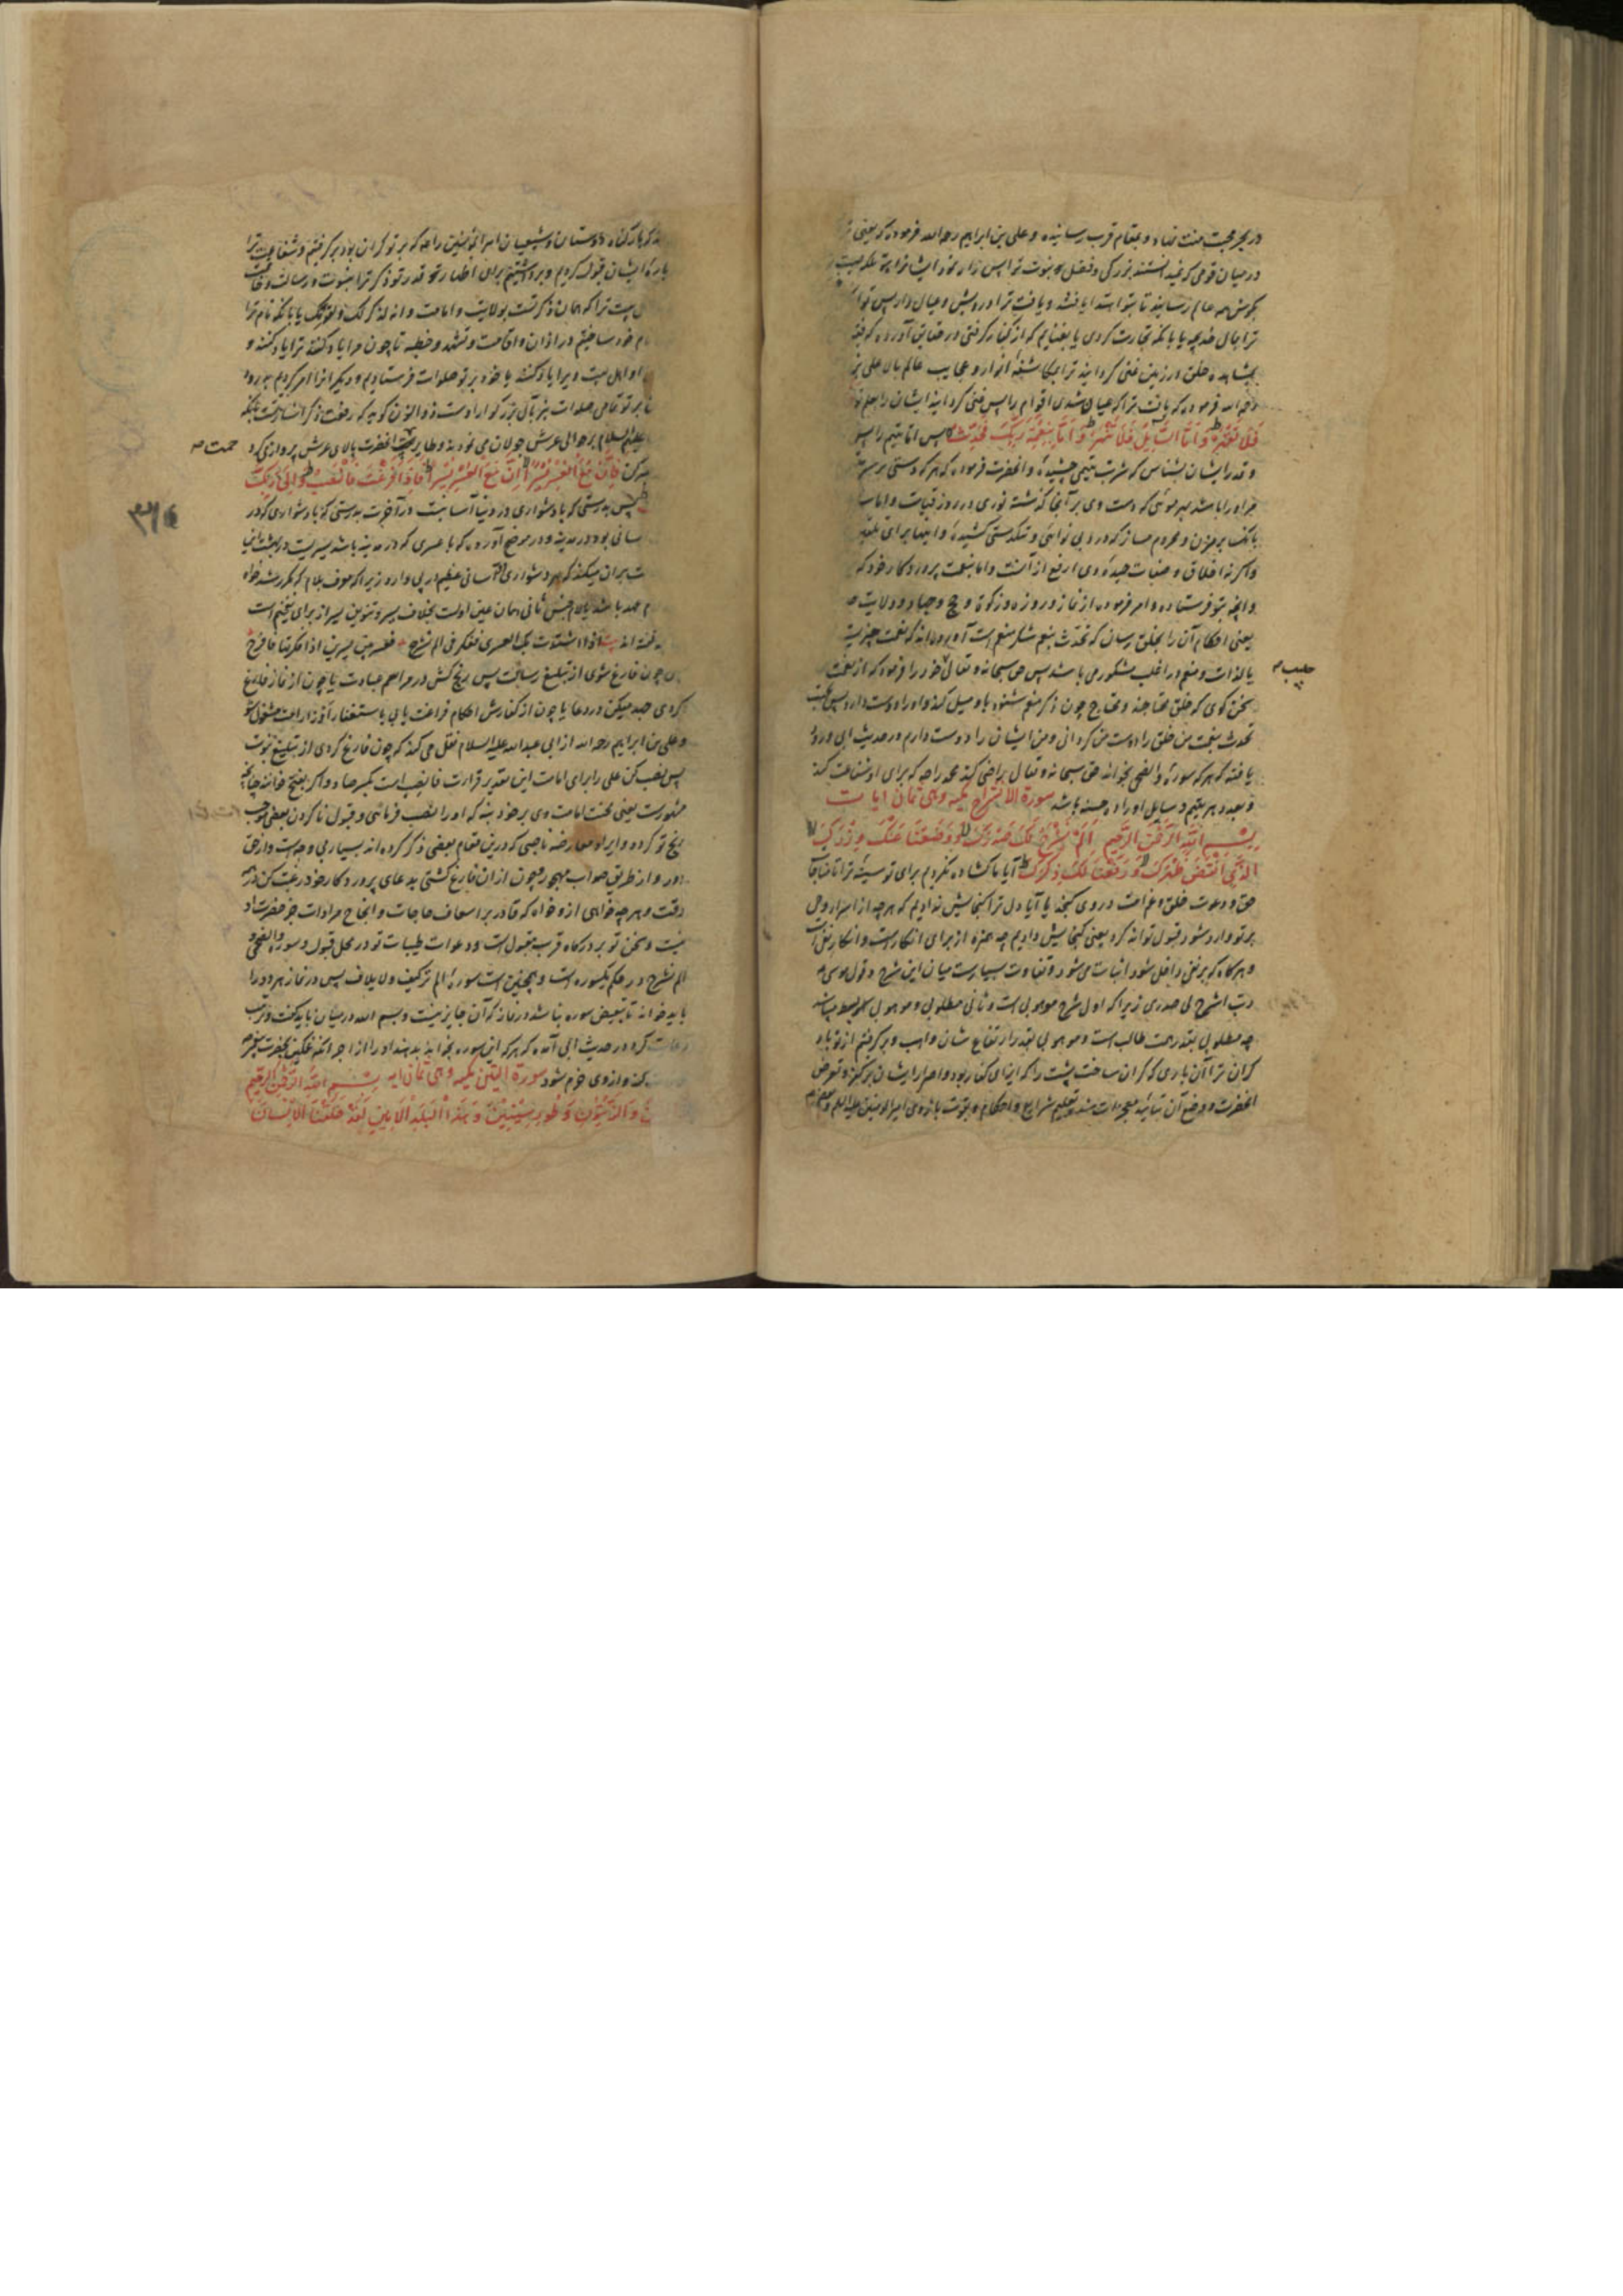 در بحر محبت منت نهاد و بمقام قرب رسانیده و علی بن ابراهیم رحمه الله فرموده که یعنی
در میان قومی که نمیدانستند بزرگی و فضل نبوت ترا پس
بگوش همه عالم رسانید تا بتو اهتدا یافتند و یافت ترا درویش و عیال دار پس توانگر
ترا بمال خدیجه یا بانکه تجارت کردی یا بغنایم که از کفار گرفتی و در حقایق آورده که فقیر
بمشاهده خلق ارزین غنی گردانید ترا بمکاشفه انوار و عجایب عالم بالا علی بن
رحمه الله فرموده که یافت ترا که عیال شدی اقوام را پس غنی گردانید ایشان را بعلم تو
فَلَا تَقْهَرْ وَأَمَّا السَّائِلَ فَلَا تَنْهَرْ وَأَمَّا بِنِعْمَةِ رَبِّكَ فَحَدِّثْ پس اما یتیم را پس
و قدر ایشان بشناس که شربت یتیمی چشیدهٔ و انحضرت فرموده که هر که دستی بر سر یتیم
جزا او را باشد بهر موئی که دست وی بر آنجا گذشته نوری در روز قیامت و اما سا
بانک بر مزن و محروم مساز که درد بی نوائی و تنکدستی کشیدهٔ و اینها برای تعلیم
و اگر نه اخلاق و صفات حمیدهٔ وی ارفع از آنست و اما بنعمت پروردکار خود که
و انچه بتو فرستاده و امر فرموده از نماز و روزه و زکوة و حج و جهاد و ولایت
یعنی احکام آن را بخلق رسان که تحدث بنعم شکر منعم است آورده اند که نعمت چیزیست
بالذات و منعم در اغلب مشکور می باشد پس حق سبحانه و تعالی خود را فرمود که از نعمت
حبیب
سخن کوی که خلق محتاجند و محتاج چون ذکر منعم شنود باو میل کند و او را دوست دارد پس
تحدث بنعمت من خلق را دوست من گردانی و من ایشان را دوست دارم و در حدیث ابی ورود
یافته که هر که سورهٔ والضحی بخواند حق سبحانه و تعالی راضی کند محمد را ص که برای او شفاعت کند
و بعدد هر یتیم و سایل او را ده حسنه باشد سورة الانشراح مکیه وهی ثمان ایات
بِسْمِ اللَّهِ الرَّحْمَنِ الرَّحِيمِ أَلَمْ نَشْرَحْ لَكَ صَدْرَكَ وَوَضَعْنَا عَنْكَ وِزْرَكَ
الَّذِي أَنْقَضَ ظَهْرَكَ وَرَفَعْنَا لَكَ ذِكْرَكَ آیا ما کشاده نکردیم برای تو سینهٔ ترا تا مناجات
حق و دعوت خلق و غم امت در وی کنجد یا آیا دل ترا کنجایش ندادیم که هرچه از اسرار وحی
بر تو وارد شود قبول تواند کرد یعنی کنجایش دادیم چه همزه از برای انکار است و انکار نفی است
و هرکاه که بر نفی داخل شود اثبات می شود و تفاوت بسیار است میان این شرح و قول موسی
رب اشرح لی صدری زیرا که اول شرح موهوبی است و ثانی مطلوبی و موهوبی
چه مطلوبی بقدر همت طالب است و موهوبی بقدر ارتفاع شان واهب و برکرفتیم از تو بار
کران ترا آن باری که کران ساخت پشت را که ایذای کفار بود و اصرار ایشان بر کفر و تعرض
انحضرت و وضع آن بتأیید معجزات شد و تعلیم شرایع و احکام و بقوت بازوی امیرالمومنین علیه السلم و بعضی
که بار کناه دوستان و شیعیان امیرالمومنین را ص که بر تو کران بود برکرفتیم و شفاعت ترا
بارهٔ ایشان قبول کردیم و برداشتیم برای اظهار قدر تو ذکر ترا بنبوت و رسالت و خاتمیت
بیت ترا که همان ذکر تست بولایت و امامت و انه لذکر لک و لقومک یا بانکه نام ترا
نام خود ساختیم در اذان و اقامت و تشهد و خطبه تا چون مرا یاد کنند ترا یاد کنند و
او اهل بیت و برا یاد کنند یا خود بر تو صلوات فرستادیم و دیکرانرا امر کردیم بدرود
تا بر تو تمامی صلوات بنز بآل بزرکوار اوست ذوالنون کوید که رفعت ذکر اشارتست بانکه
علیهم السلام بر حوالی عرش جولان می نمودند و طایر همت انحضرت بالای عرش پرواز می کرد
همت
فَإِنَّ مَعَ الْعُسْرِ يُسْرًا إِنَّ مَعَ الْعُسْرِ يُسْرًا فَإِذَا فَرَغْتَ فَانْصَبْ وَإِلَى رَبِّكَ
پس بدرستی که با دشواری در دنیا آسانیست در آخرت بدرستی که با دشواری که در
سانی بود در مدینه و در موضح آورده که با عسری که در مدینه باشد یسریست در بهشت این
ت بران میکند که هر دشواری آسانی عظیم در پی دارد زیرا که معرف بلام که مکرر شد خواه
م عهد باشد یا لام جنس ثانی همان عین اولست بخلاف یسر و تنوین یسر از برای تفخیم است
کفته اند بیت اذا اشتدت بک العسری ففکر فی الم نشرح فعسر بین یسرین اذا فکرتها فافرح
چون فارغ شوی از تبلیغ رسالت پس رنج کش در مراسم عبادت یا چون از نماز فارغ
کردی جهد میکن در دعا یا چون از کفارش احکام فراغت یابی باستغفار مشغول شو
و علی بن ابراهیم رحمه الله از ابی عبدالله علیه السلام نقل می کند که چون فارغ کردی از تبلیغ نبوت
پس نصب کن علی را برای امامت این بتقدیر قرائت فانصب است بکسر صاد و اکر بفتح خوانند چنانچه
مشهور است یعنی محنت امامت وی بر خود بنه که او را نصب فرمائی و قبول نا کردن بعضی موجب
رنج تو کرده و ایراد معارضه ناصبی که درین مقام بعضی ذکر کرده اند بسیار بی وجه است و از حق
دور و از طریق صواب مهجور و چون از ان فارغ کشتی بدعای پروردکار خود رغبت کن در همه
وقت و هرچه خواهی از و خواه که قادر بر اسعاف حاجات و انجاح مرادات جز حضرت او
نیست و سخن تو بر درکاه قرب مقبول است و دعوات طیبات تو در محل قبول و سوره والضحی و
الم نشرح در حکم یکسوره است و همچنین است سورهٔ الم تر کیف و لایلاف پس در نماز هر دو را
باید خواند تا تبعیض سوره نباشد در نماز که آن جایز نیست و بسم الله در میان باید کفت و ترتیب
رعایت کرد و در حدیث ابی آمده که هر که این سوره بخواند بدهند او را از اجر انکه غمکین بحضرت پیغمبر
کند و از وی خرم شود سورة التین مکیه وهی ثمان ایه بِسْمِ اللَّهِ الرَّحْمَنِ الرَّحِيمِ
وَالزَّيْتُونِ وَطُورِ سِينِينَ وَهَذَا الْبَلَدِ الْأَمِينِ لَقَدْ خَلَقْنَا الْإِنْسَانَ